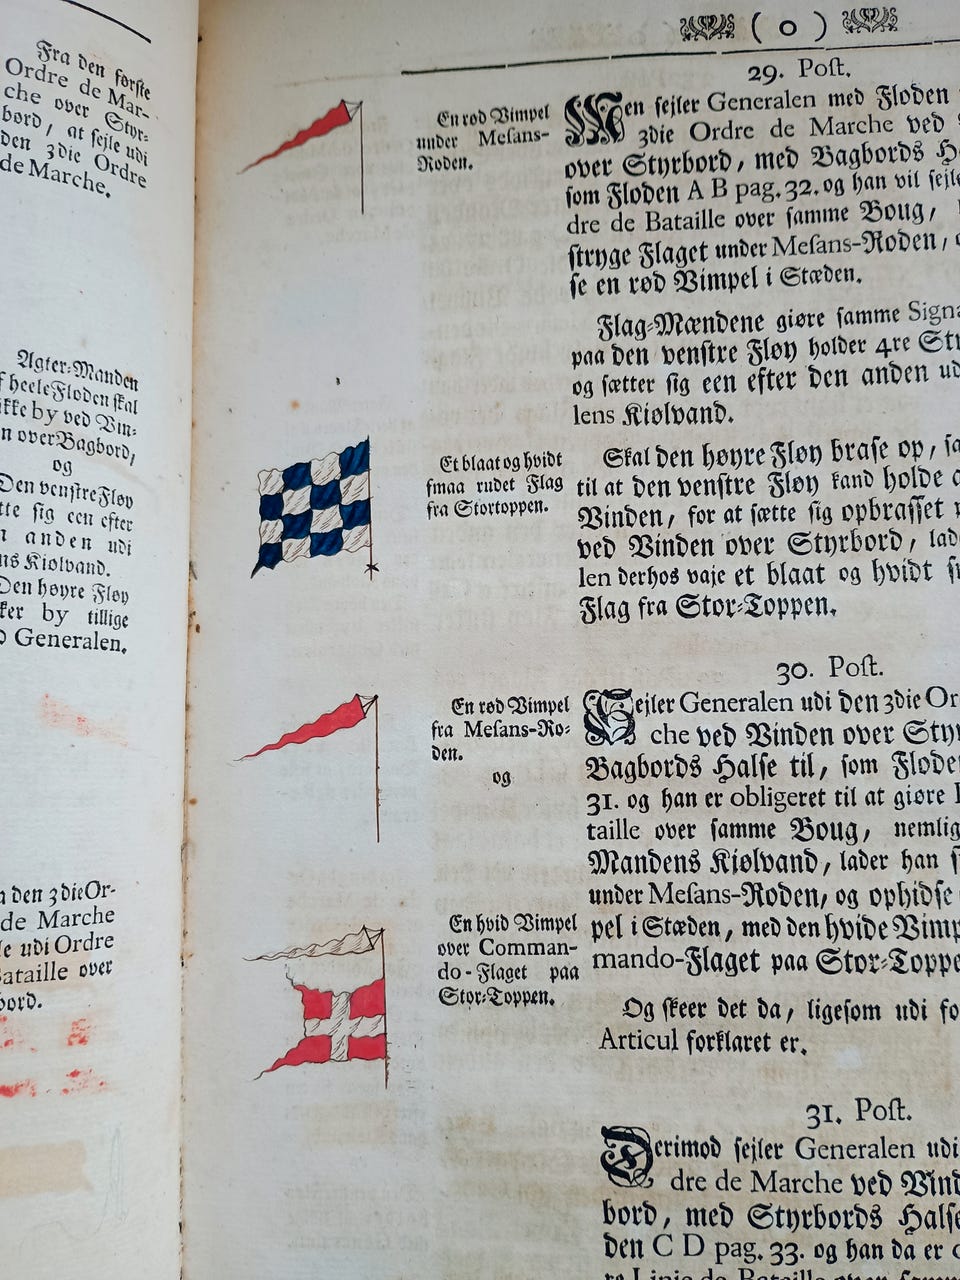 Fra den første
Ordre de Mar-
che over Styr-
bord, at sejle udi
den 3die Ordre
de Marche.
Agter-Manden
f heele Floden skal
ikke by ved Vin-
n over Bagbord,
og
Den venstre Fløy
tte sig een efter
n anden udi
ns Kiølvand.
Den høyre Fløy
ker by tillige
d Generalen.
a den 3die Or-
de Marche
le udi Ordre
Bataille over
bord.
( 0 )
29. Post.
En rød Vimpel
under Mesans-
Roden.
Men sejler Generalen med Floden
3die Ordre de Marche ved
over Styrbord, med Bagbords H
som Floden A B pag. 32. og han vil sejle
dre de Bataille over samme Boug,
stryge Flaget under Mesans-Roden,
se en rød Vimpel i Stæden.
Flag-Mændene giøre samme Signa
paa den venstre Fløy holder 4re Str
og sætter sig een efter den anden ud
lens Kiølvand.
Et blaat og hvidt
smaa rudet Flag
fra Stortoppen.
Skal den høyre Fløy brase op, sa
til at den venstre Fløy kand holde
Vinden, for at sætte sig opbrasset
ved Vinden over Styrbord, lad
len derhos vaje et blaat og hvidt s
Flag fra Stor-Toppen.
30. Post.
En rød Vimpel
fra Mesans-Ro-
den.
og
Sejler Generalen udi den 3die Or
che ved Vinden over Styr
Bagbords Halse til, som Flode
31. og han er obligeret til at giøre
taille over samme Boug, nemlig
Mandens Kiølvand, lader han s
under Mesans-Roden, og ophidse
pel i Stæden, med den hvide Vimp
mando-Flaget paa Stor-Toppe
En hvid Vimpel
over Comman-
do-Flaget paa
Stor-Toppen.
Og skeer det da, ligesom udi fo
Articul forklaret er.
31. Post.
Derimod sejler Generalen udi
dre de Marche ved Vind
bord, med Styrbords Halse
den C D pag. 33. og han da er
re Linie de Bataille over samm